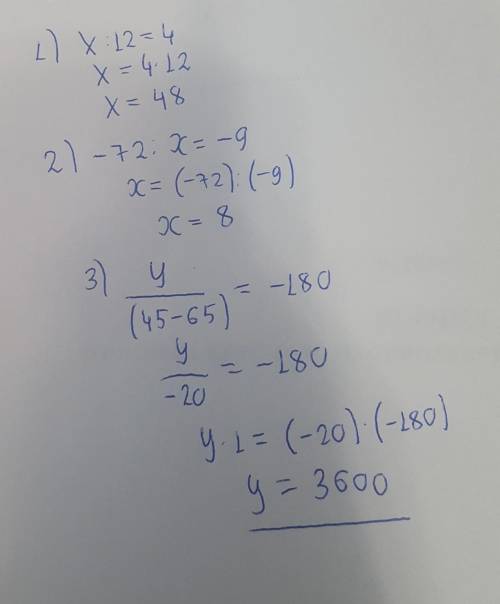 1) x : 12 = 4
x = 4 · 12
x = 48
2) -72 : x = -9
x = (-72) : (-9)
x = 8
3) y/(45-65) = -180
y/-20 = -180
y · 1 = (-20) · (-180)
y = 3600